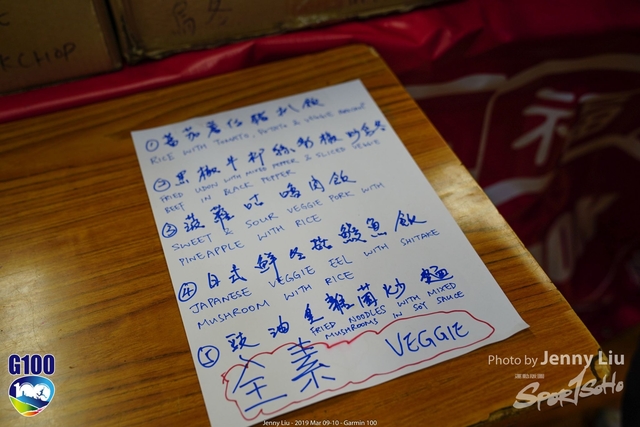 CHOP
① 蕃茄薯仔豬扒飯
RICE WITH TOMATO, POTATO & VEGGIE
② 黑椒牛柳絲彩椒炒烏冬
FRIED UDON WITH MIXED PEPPER & SLICED VEGGIE
BEEF IN BLACK PEPPER
③ 菠蘿咕嚕肉飯
SWEET & SOUR VEGGIE PORK WITH
PINEAPPLE WITH RICE
④ 日式鮮冬菇鰻魚飯
JAPANESE VEGGIE EEL WITH SHITAKE
MUSHROOM WITH RICE
⑤ 豉油皇雜菌炒麵
FRIED NOODLES WITH MIXED
MUSHROOMS IN SOY SAUCE
全素 VEGGIE
福
G100
100
Photo by Jenny Liu
運動版圖
SPORTSOHO
Jenny Liu - 2019 Mar 09-10 - Garmin 100